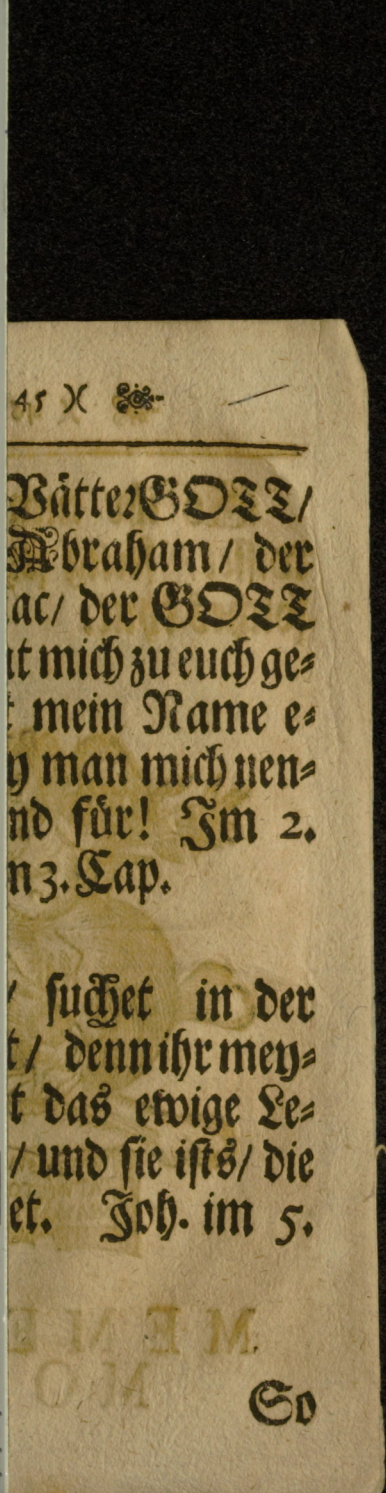 45 )(
VätterGOTT/
Abraham/ der
ac/ der GOTT
t mich zu euch ge⸗
mein Name e⸗
y man mich nen⸗
nd für! Im 2.
n 3. Cap.
/ suchet in der
t/ denn ihr mey⸗
t das ewige Le⸗
/ und sie ists/ die
et. Joh. im 5.
So